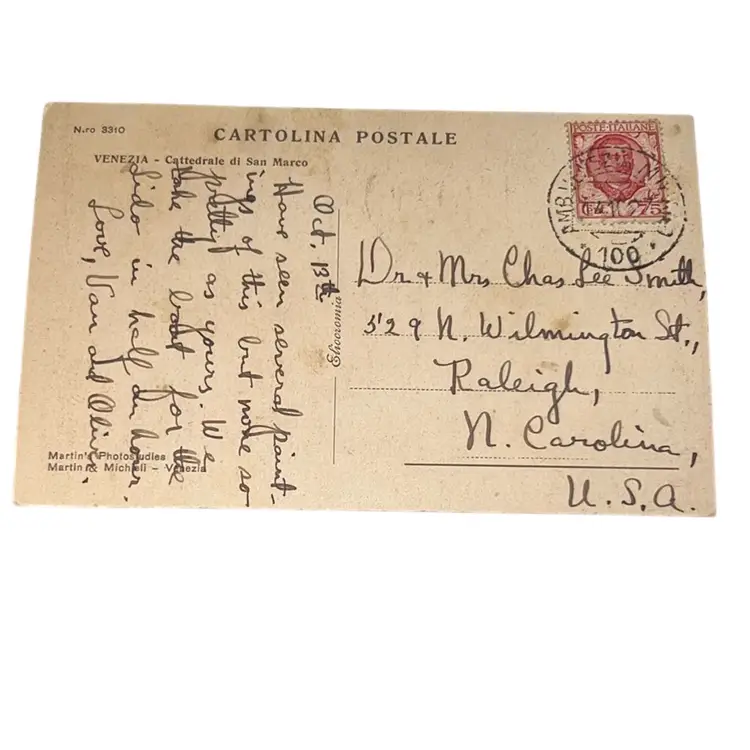 N.ro 3310
CARTOLINA POSTALE
VENEZIA - Cattedrale di San Marco
Oct. 13th
Have seen several paint-
ings of this but none so
pretty as yours. We
take the boat for the
Lido in half an hour.
Love, Van and Olive.
Eliocromia
Martin's Photostudies
Martin & Micheli - Venezia
POSTE·ITALIANE
75
AMB.
100
Dr & Mrs Chas Lee Smith,
529 N. Wilmington St.,
Raleigh,
N. Carolina,
U.S.A.